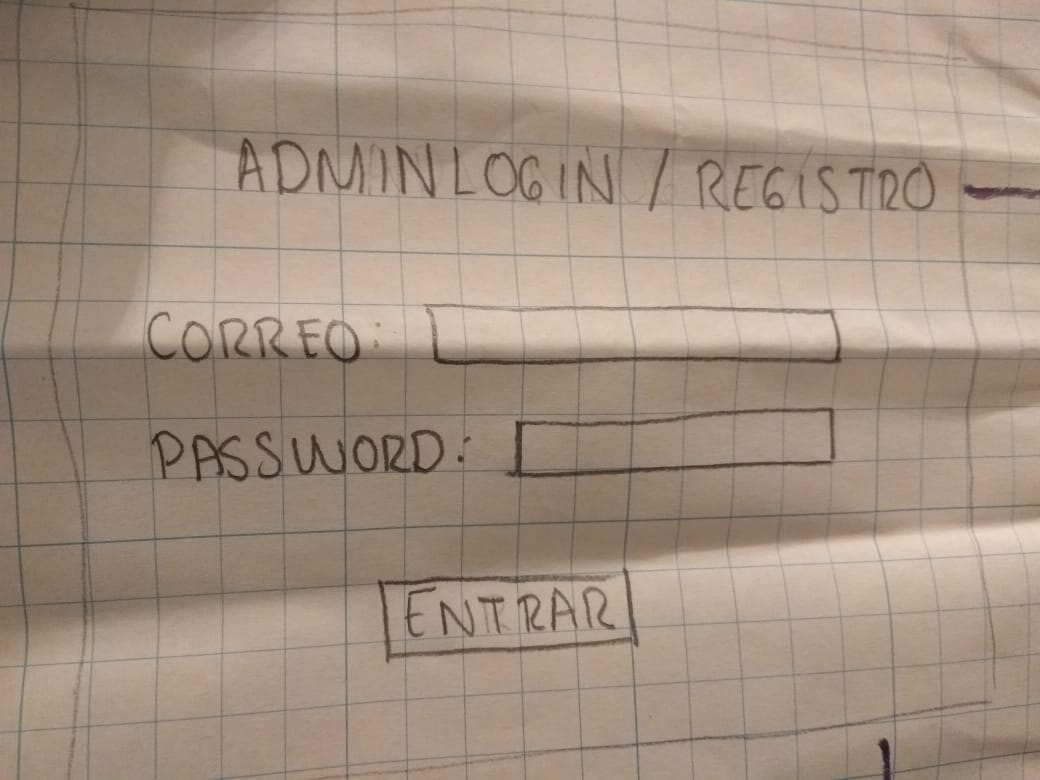 ADMINLOGIN / REGISTRO
CORREO:
PASSWORD:
ENTRAR